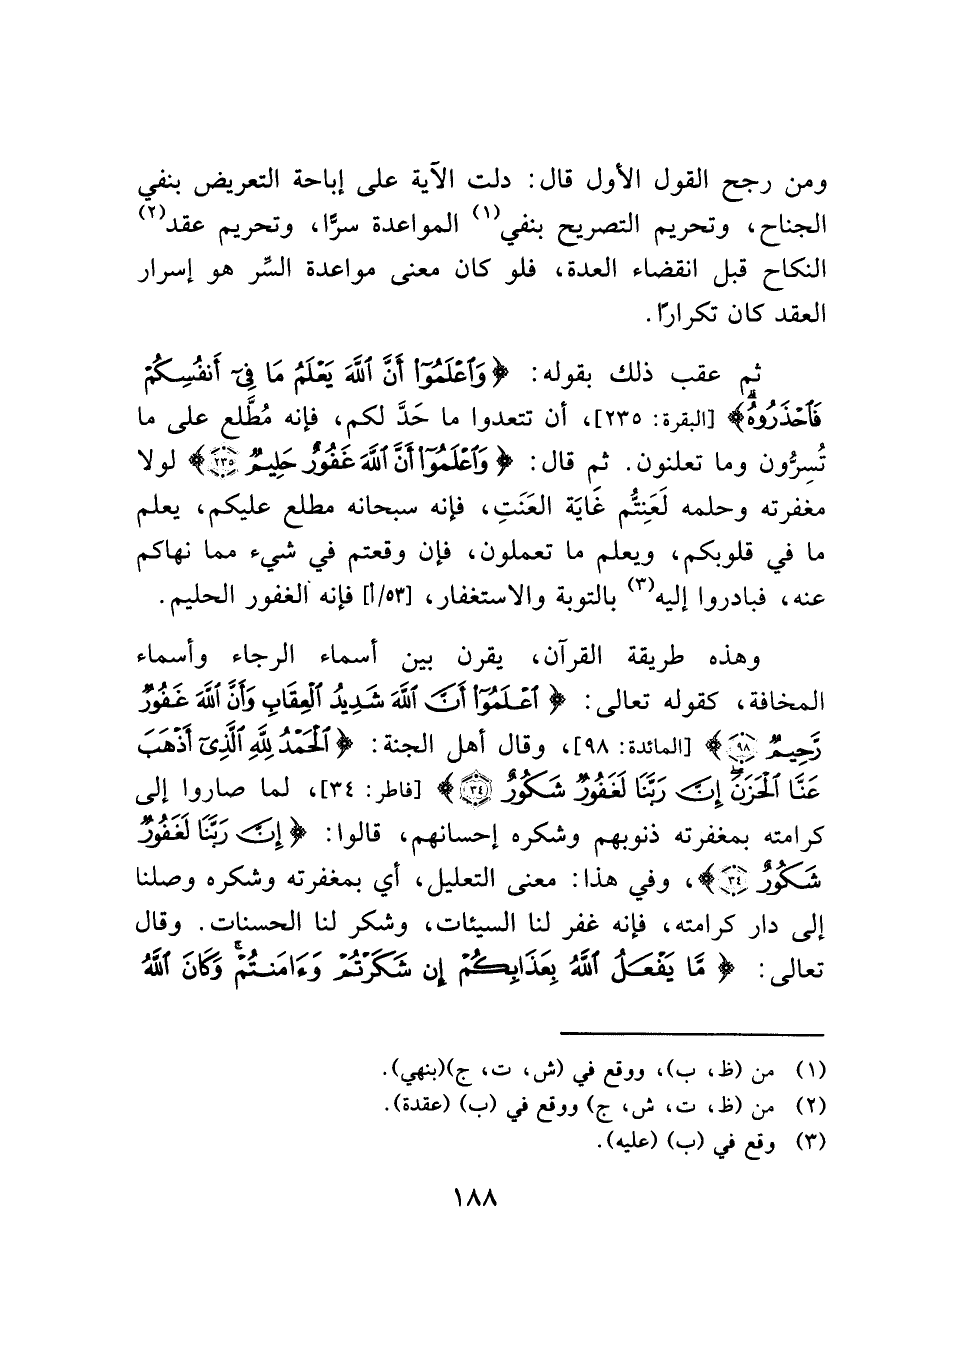 ومن رجح القول الأول قال: دلت الآية على إباحة التعريض بنفي
الجناح، وتحريم التصريح بنفي(١) المواعدة سرًّا، وتحريم عقد(٢)
النكاح قبل انقضاء العدة، فلو كان معنى مواعدة السِّر هو إسرار
العقد كان تكرارًا.
ثم عقب ذلك بقوله: ﴿وَٱعْلَمُوٓا۟ أَنَّ ٱللَّهَ يَعْلَمُ مَا فِىٓ أَنفُسِكُمْ
فَٱحْذَرُوهُ﴾ [البقرة: ٢٣٥]، أن تتعدوا ما حَدَّ لكم، فإنه مُطَّلع على ما
تُسِرُّون وما تعلنون. ثم قال: ﴿وَٱعْلَمُوٓا۟ أَنَّ ٱللَّهَ غَفُورٌ حَلِيمٌ ٢٣٥﴾ لولا
مغفرته وحلمه لَعَنِتُّم غَايَة العَنَتِ، فإنه سبحانه مطلع عليكم، يعلم
ما في قلوبكم، ويعلم ما تعملون، فإن وقعتم في شيء مما نهاكم
عنه، فبادروا إليه(٣) بالتوبة والاستغفار، [٥٣/أ] فإنه الغفور الحليم.
وهذه طريقة القرآن، يقرن بين أسماء الرجاء وأسماء
المخافة، كقوله تعالى: ﴿ٱعْلَمُوٓا۟ أَنَّ ٱللَّهَ شَدِيدُ ٱلْعِقَابِ وَأَنَّ ٱللَّهَ غَفُورٌ
رَّحِيمٌ ٩٨﴾ [المائدة: ٩٨]، وقال أهل الجنة: ﴿ٱلْحَمْدُ لِلَّهِ ٱلَّذِىٓ أَذْهَبَ
عَنَّا ٱلْحَزَنَ ۖ إِنَّ رَبَّنَا لَغَفُورٌ شَكُورٌ ٣٤﴾ [فاطر: ٣٤]، لما صاروا إلى
كرامته بمغفرته ذنوبهم وشكره إحسانهم، قالوا: ﴿إِنَّ رَبَّنَا لَغَفُورٌ
شَكُورٌ ٣٤﴾، وفي هذا: معنى التعليل، أي بمغفرته وشكره وصلنا
إلى دار كرامته، فإنه غفر لنا السيئات، وشكر لنا الحسنات. وقال
تعالى: ﴿مَّا يَفْعَلُ ٱللَّهُ بِعَذَابِكُمْ إِن شَكَرْتُمْ وَءَامَنتُمْ ۚ وَكَانَ ٱللَّهُ
(١) من (ظ، ب)، ووقع في (ش، ت، ج)(بنهي).
(٢) من (ظ، ت، ش، ج) ووقع في (ب) (عقدة).
(٣) وقع في (ب) (عليه).
١٨٨